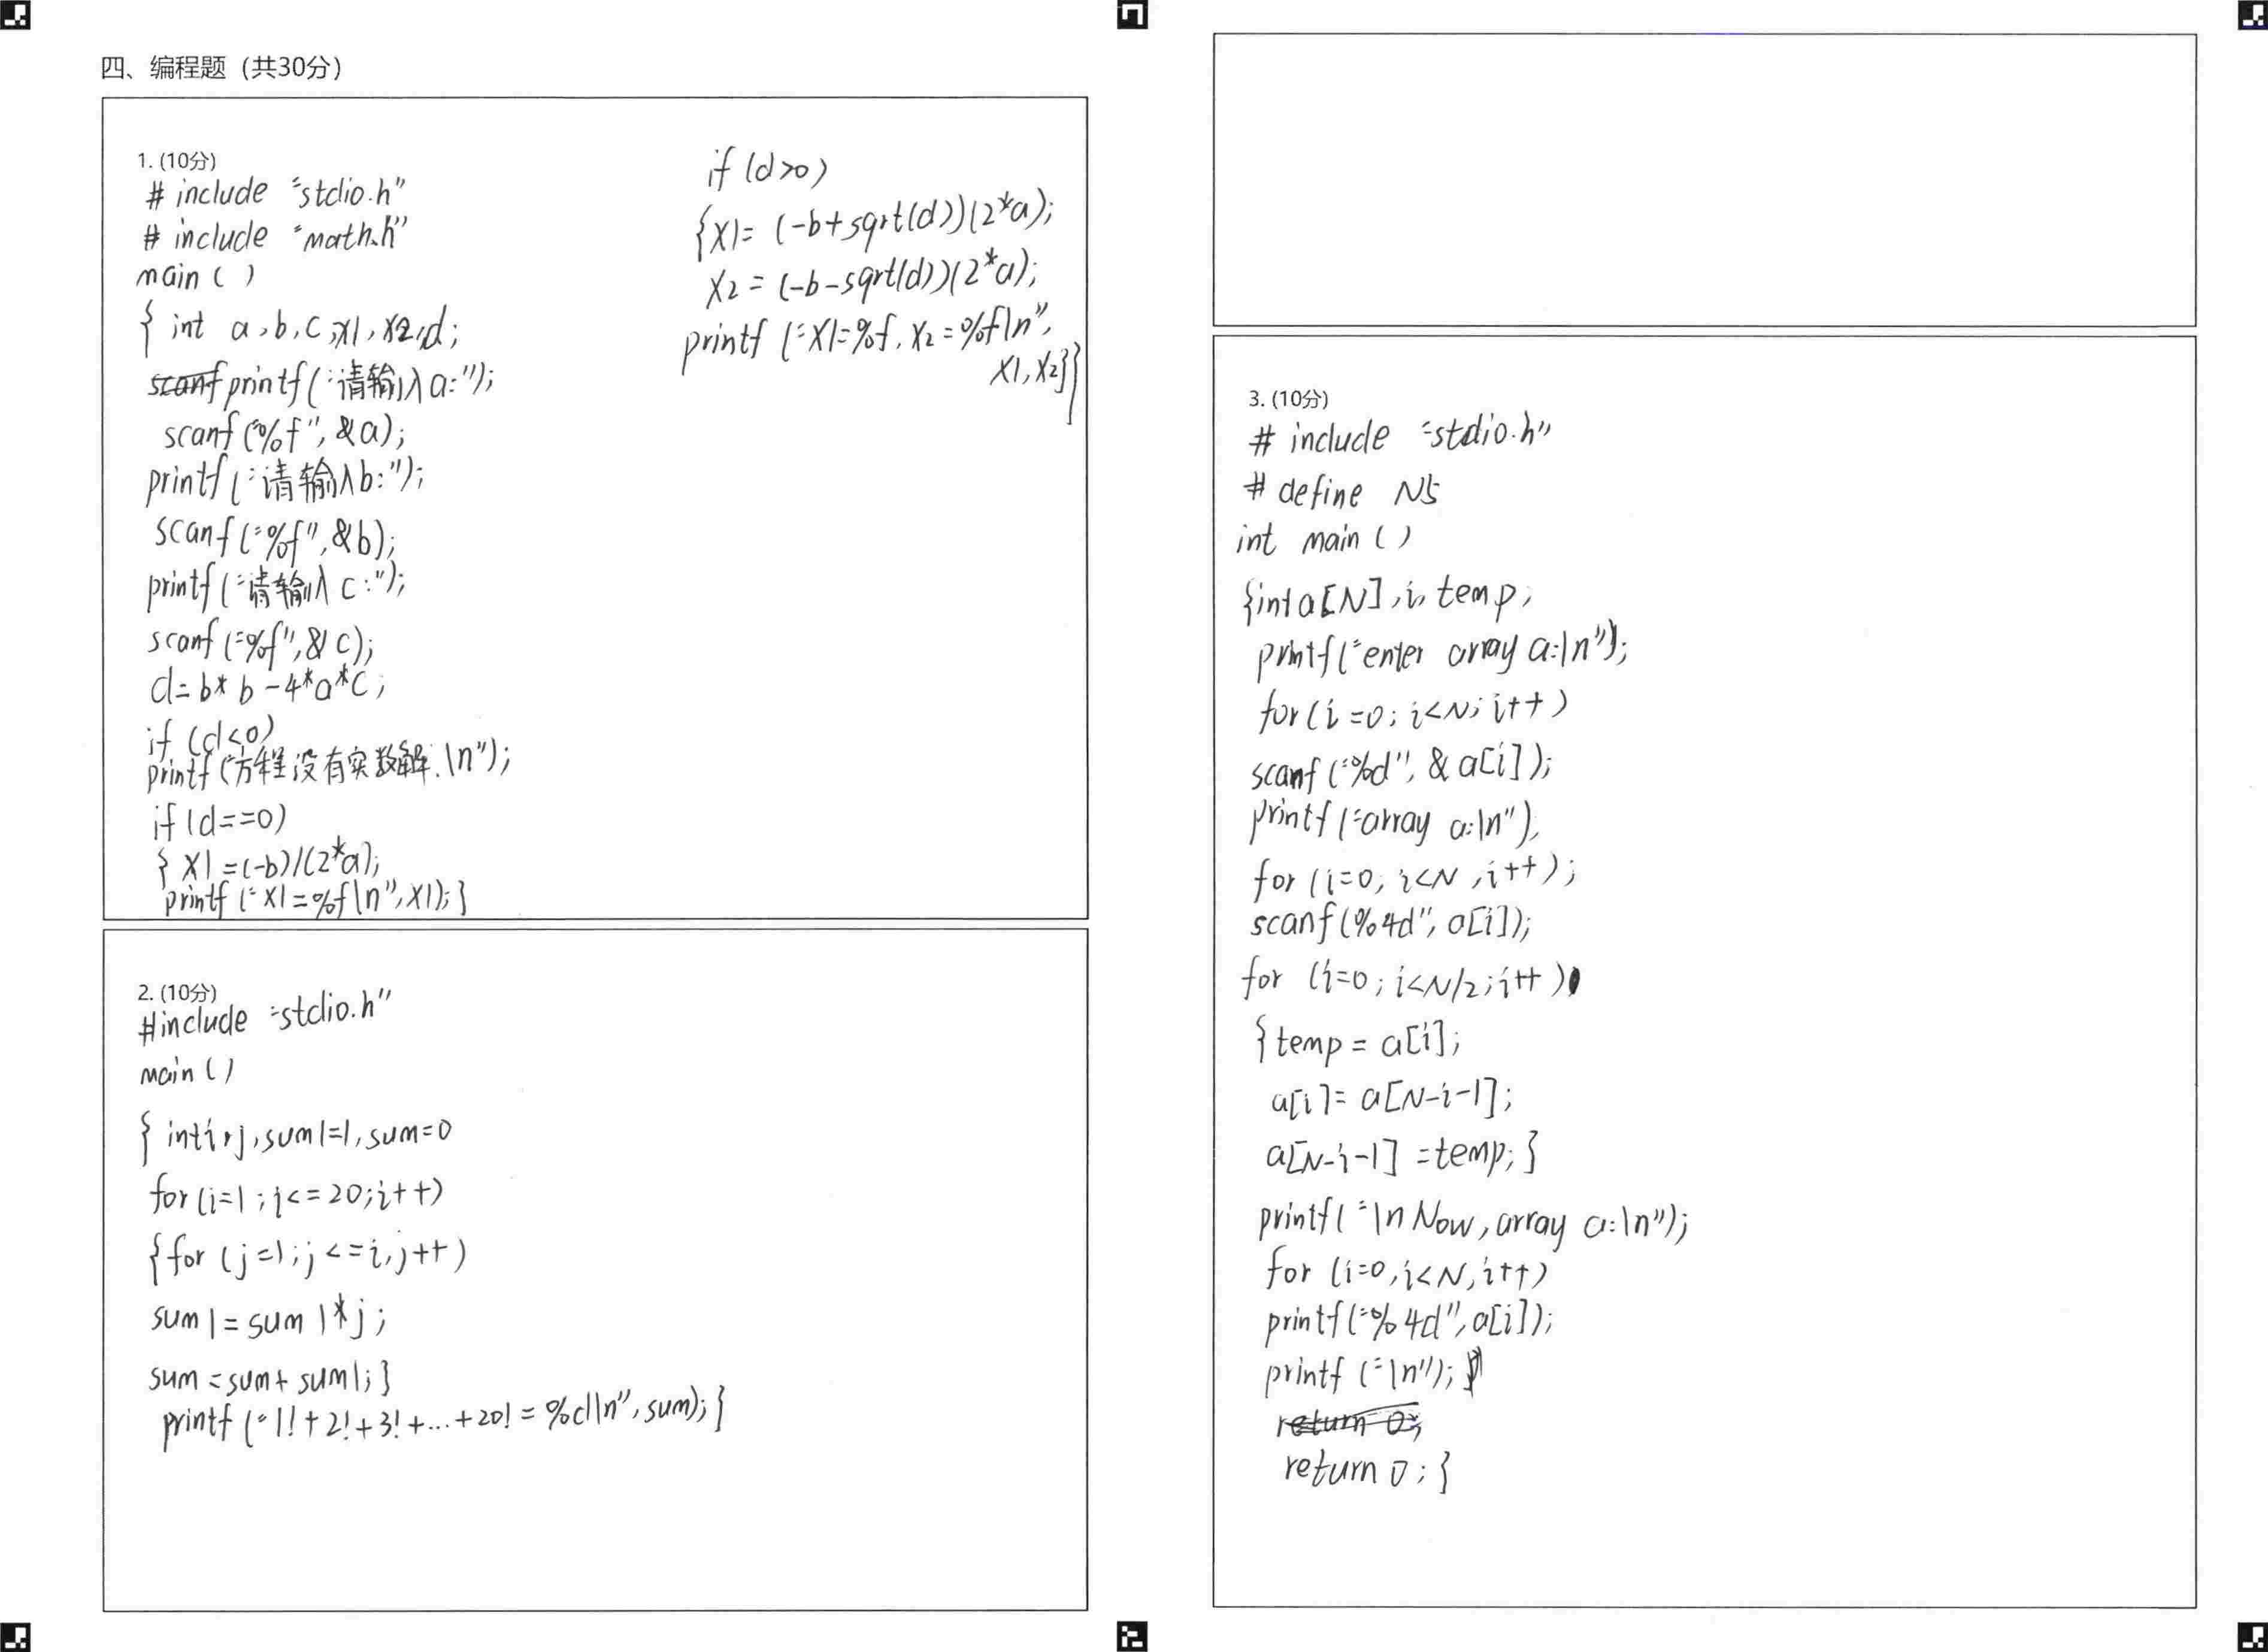 四、编程题（共30分）
1. (10分)
# include "stdio.h"
# include "math.h"
main ( )
{ int a,b,c,x1,x2,d;
printf("请输入a:");
scanf("%f",&a);
printf("请输入b:");
scanf("%f",&b);
printf("请输入c:");
scanf("%f",&c);
d=b*b-4*a*c;
if (d<0)
printf("方程没有实数解.\n");
if(d==0)
{ x1=(-b)/(2*a);
printf("x1=%f\n",x1);}
if(d>0)
{x1=(-b+sqrt(d))(2*a);
x2=(-b-sqrt(d))(2*a);
printf("x1=%f,x2=%f\n",
x1,x2}}
2. (10分)
#include "stdio.h"
main()
{ int i,j,sum1=1,sum=0
for(i=1;i<=20;i++)
{for (j=1;j<=i,j++)
sum1=sum1*j;
sum=sum+sum1;}
printf("1!+2!+3!+...+20!=%d\n",sum);}
3. (10分)
# include "stdio.h"
# define N5
int main ( )
{int a[N],i,temp;
printf("enter array a:\n");
for(i=0;i<N;i++)
scanf("%d",&a[i]);
printf("array a:\n"),
for (i=0;i<N,i++);
scanf(%4d",a[i]);
for (i=0;i<N/2;i++)
{temp=a[i];
a[i]=a[N-i-1];
a[N-i-1]=temp;}
printf("\n Now,array a:\n");
for (i=0,i<N,i++)
printf("%4d",a[i]);
printf("\n");
return 0;}